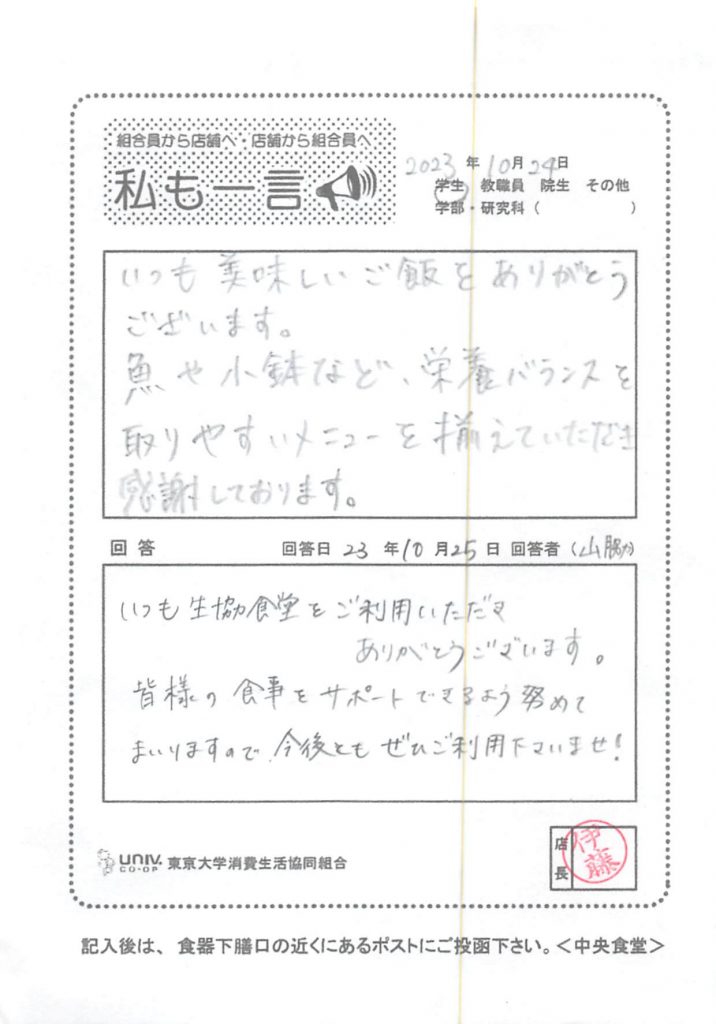 組合員から店舗へ・店舗から組合員へ
私も一言
2023年10月24日
学生 教職員 院生 その他
学部・研究科( )
いつも美味しいご飯をありがとう
ございます。
魚や小鉢など、栄養バランスを
取りやすいメニューを揃えていただき
感謝しております。
回答 回答日 23年10月25日 回答者(山脇)
いつも生協食堂をご利用いただき
ありがとうございます。
皆様の食事をサポートできるよう努めて
まいりますので、今後ともぜひご利用下さいませ!
UNIV. CO-OP 東京大学消費生活協同組合
店長 伊藤
記入後は、食器下膳口の近くにあるポストにご投函下さい。<中央食堂>